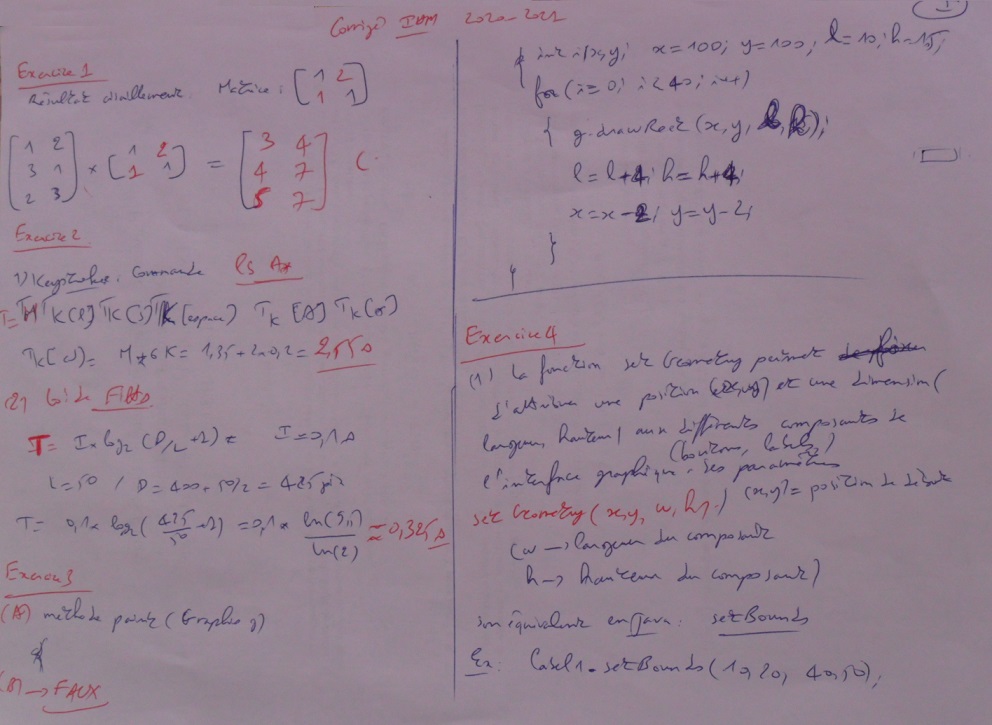 Corrigé IHM 2020-2021
Exercice 1
Résultat Matrice : [ 1 2
1 1 ]
[ 1 2
3 1
2 3 ] × [ 1 2
1 1 ] = [ 3 4
4 7
5 7 ]
Exercice 2
1) Keystroke. Commande ls A*
TK[l] TK[s] TK[espace] TK[A] TK[*]
= 1,35 + 0,2 = 2,55 s
2) Loi de Fitts
T = I × log2 (D/L + 1) = I = 0,1 s
L = 50 / D = 400 + 50/2 = 425 pix
T = 0,1 × log2 ( 425/50 + 1) = 0,1 × ln(9,5)/ln(2) ≈ 0,325 s
Exercice 3
(A) méthode paint (Graphics g)
{
(B) → FAUX
{ int i, x, y; x = 100; y = 100; l = 10; h = 15;
for (i = 0; i < 40; i++)
{ g.drawRect (x, y, l, h);
l = l+4; h = h+4;
x = x-2; y = y-2;
}
}
Exercice 4
(1) La fonction set Geometry permet
d'attribuer une position (x, y) et une dimension (
longueur, hauteur) aux différents composants de
l'interface graphique. (boutons, labels, ) Ses paramètres
set Geometry (x, y, w, h) (x, y) = position de départ
(w → longueur du composant
h → hauteur du composant)
son équivalent en Java : setBounds
Ex: Label1.setBounds (10, 20, 40, 50);